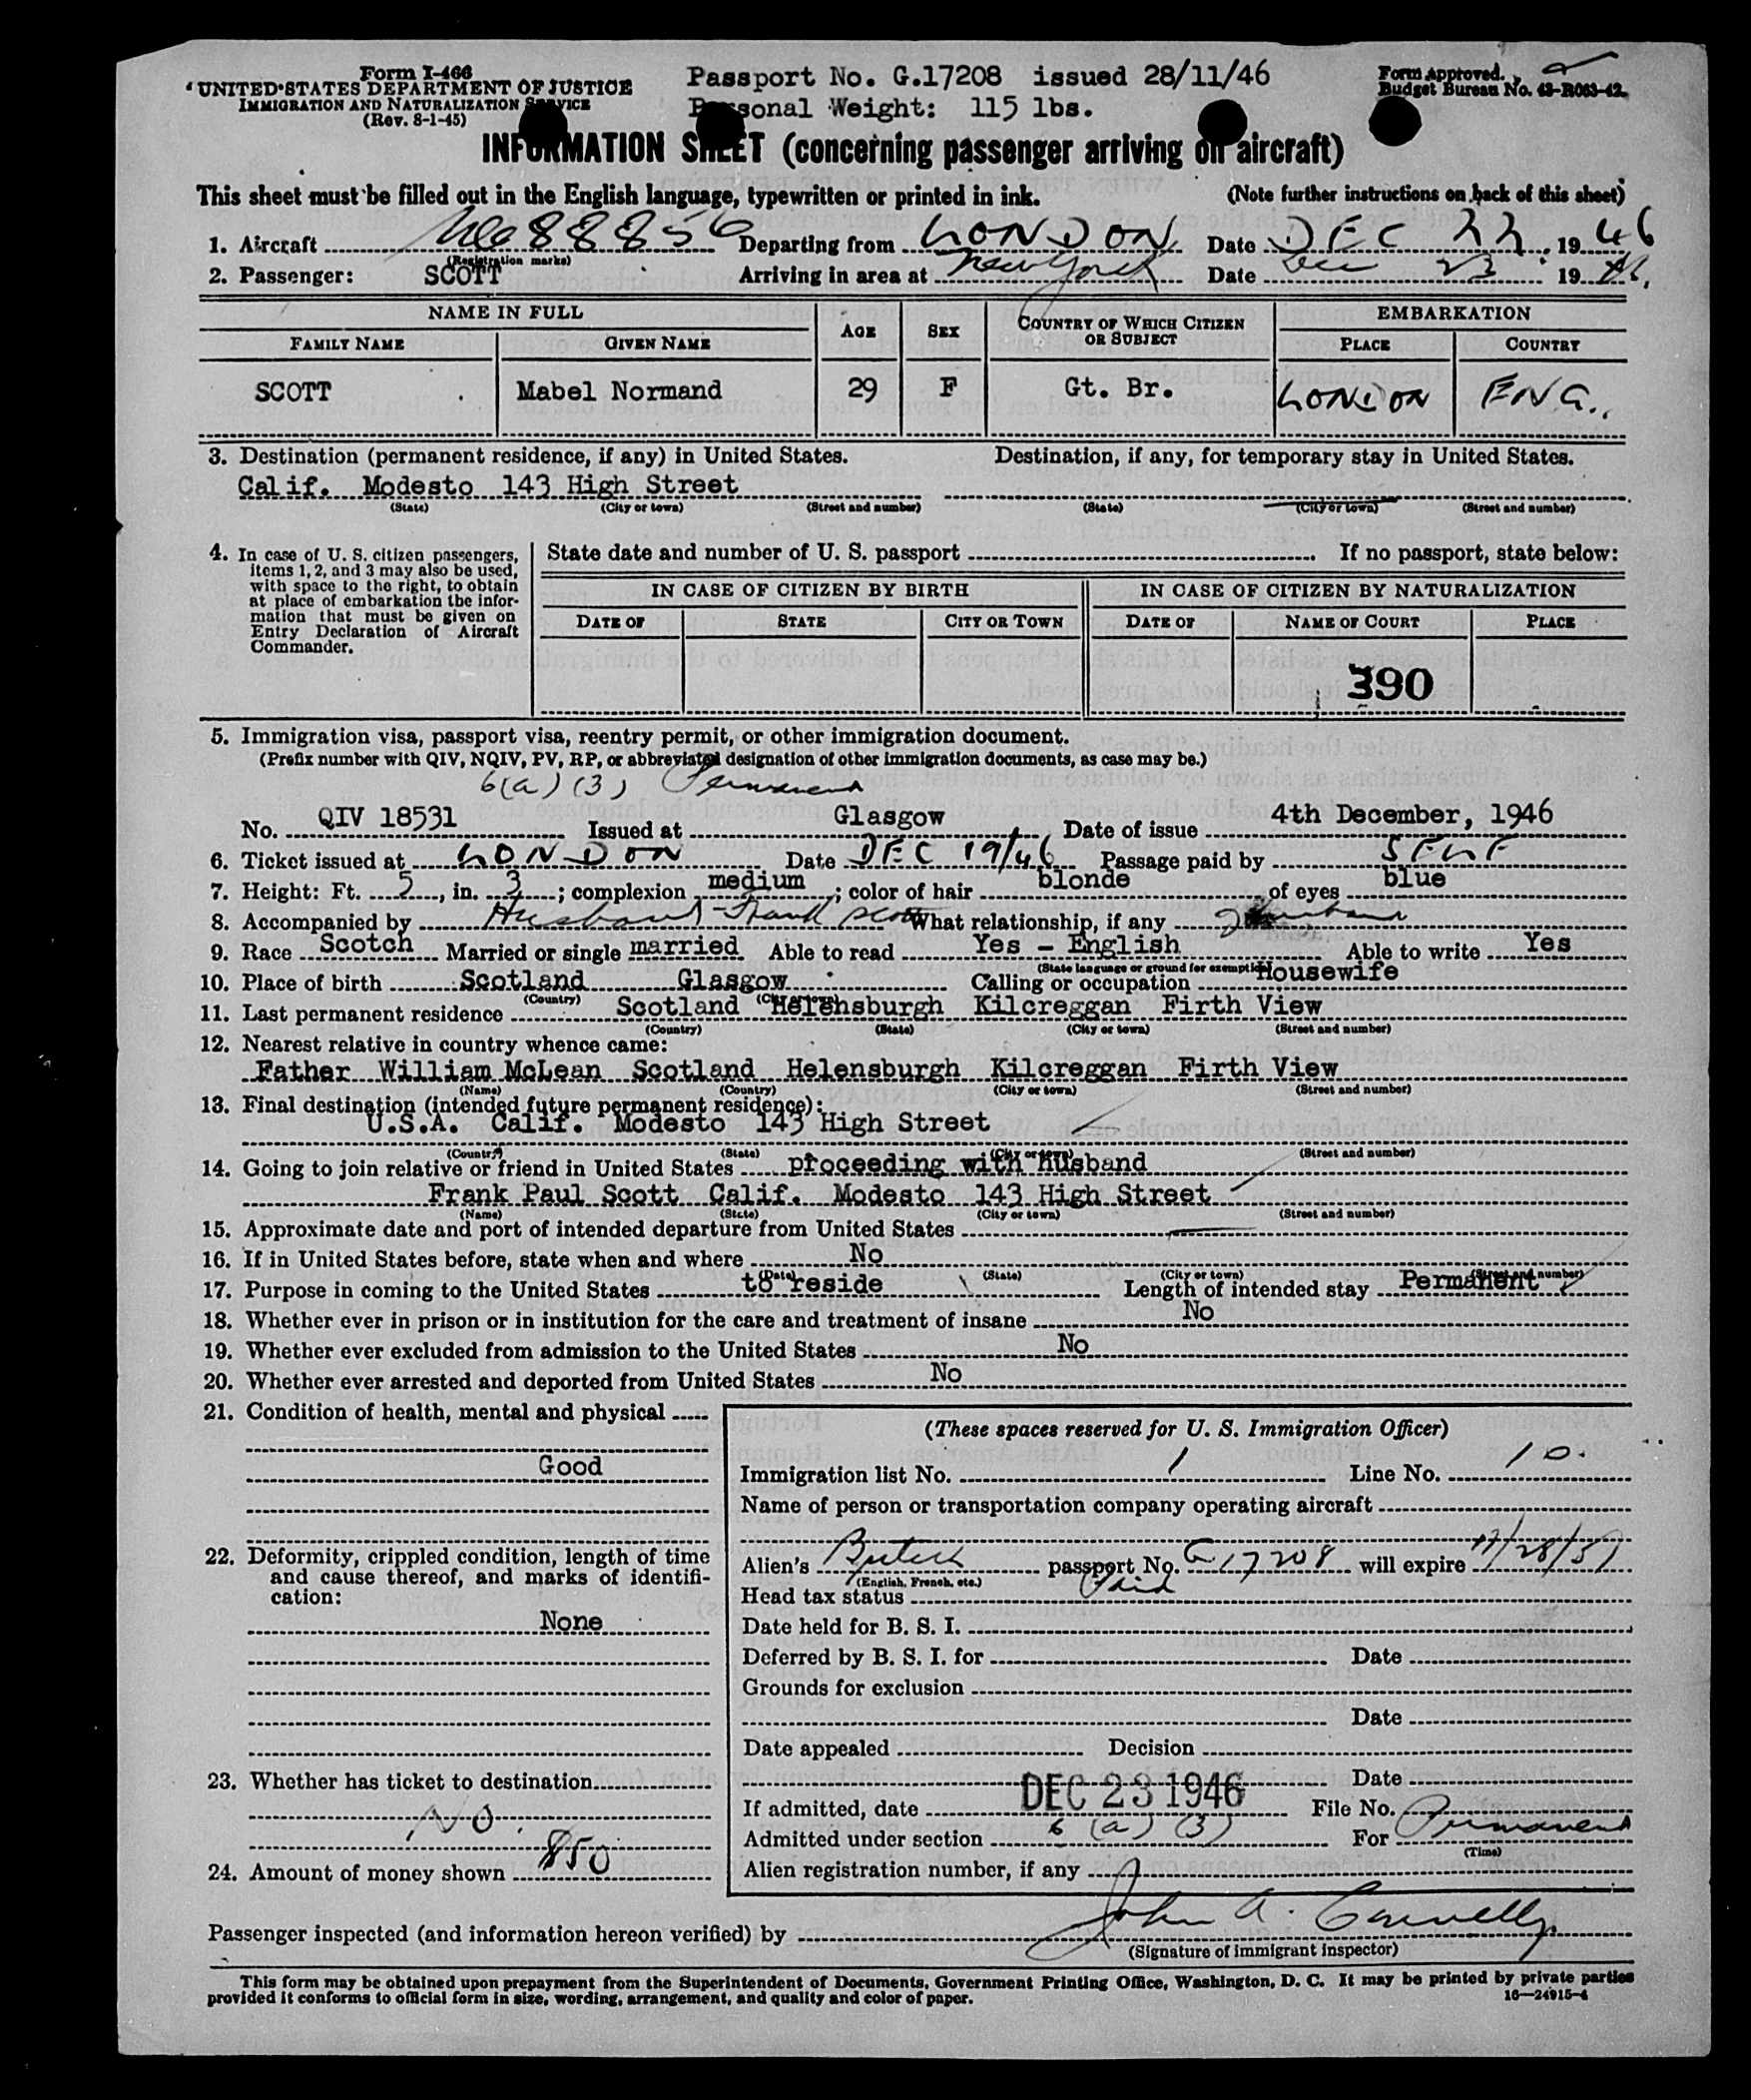 Form I-466
UNITED STATES DEPARTMENT OF JUSTICE
IMMIGRATION AND NATURALIZATION SERVICE
(Rev. 8-1-45)
Passport No. G.17208 issued 28/11/46
Personal Weight: 115 lbs.
Form Approved.
Budget Bureau No. 43-R063-42.
INFORMATION SHEET (concerning passenger arriving on aircraft)
This sheet must be filled out in the English language, typewritten or printed in ink. (Note further instructions on back of this sheet)
1. Aircraft 88856 Departing from LONDON Date DEC 22, 1946
(Registration marks)
2. Passenger: SCOTT Arriving in area at New York Date Dec 23 1946,
NAME IN FULL AGE SEX COUNTRY OF WHICH CITIZEN OR SUBJECT EMBARKATION
FAMILY NAME GIVEN NAME PLACE COUNTRY
SCOTT Mabel Normand 29 F Gt. Br. LONDON ENG.
3. Destination (permanent residence, if any) in United States. Destination, if any, for temporary stay in United States.
Calif. Modesto 143 High Street
(State) (City or town) (Street and number) (State) (City or town) (Street and number)
4. In case of U. S. citizen passengers, items 1, 2, and 3 may also be used, with space to the right, to obtain at place of embarkation the information that must be given on Entry Declaration of Aircraft Commander.
State date and number of U. S. passport If no passport, state below:
IN CASE OF CITIZEN BY BIRTH IN CASE OF CITIZEN BY NATURALIZATION
DATE OF STATE CITY OR TOWN DATE OF NAME OF COURT PLACE
390
5. Immigration visa, passport visa, reentry permit, or other immigration document.
(Prefix number with QIV, NQIV, PV, RP, or abbreviated designation of other immigration documents, as case may be.)
6(a)(3) Permanent
No. QIV 18531 Issued at Glasgow Date of issue 4th December, 1946
6. Ticket issued at LONDON Date DEC 19/46 Passage paid by SELF
7. Height: Ft. 5, in. 3; complexion medium; color of hair blonde of eyes blue
8. Accompanied by Husband - Frank Scott What relationship, if any Husband
9. Race Scotch Married or single married Able to read Yes - English Able to write Yes
(State language or ground for exemption)
10. Place of birth Scotland Glasgow Calling or occupation Housewife
(Country) (City or town)
11. Last permanent residence Scotland Helensburgh Kilcreggan Firth View
(Country) (State) (City or town) (Street and number)
12. Nearest relative in country whence came:
Father William McLean Scotland Helensburgh Kilcreggan Firth View
(Name) (Country) (City or town) (Street and number)
13. Final destination (intended future permanent residence):
U.S.A. Calif. Modesto 143 High Street
(Country) (State) (City or town) (Street and number)
14. Going to join relative or friend in United States proceeding with husband
Frank Paul Scott Calif. Modesto 143 High Street
(Name) (State) (City or town) (Street and number)
15. Approximate date and port of intended departure from United States
16. If in United States before, state when and where No
(Date) (State) (City or town) (Street and number)
17. Purpose in coming to the United States to reside Length of intended stay Permanent
18. Whether ever in prison or in institution for the care and treatment of insane No
19. Whether ever excluded from admission to the United States No
20. Whether ever arrested and deported from United States No
21. Condition of health, mental and physical
Good
22. Deformity, crippled condition, length of time and cause thereof, and marks of identification:
None
23. Whether has ticket to destination
NO.
24. Amount of money shown 850
(These spaces reserved for U. S. Immigration Officer)
Immigration list No. 1 Line No. 10.
Name of person or transportation company operating aircraft
Alien's British passport No. G17208 will expire 11/28/51
(English, French, etc.)
Head tax status Paid
Date held for B. S. I.
Deferred by B. S. I. for Date
Grounds for exclusion
Date
Date appealed Decision
Date
If admitted, date DEC 23 1946 File No.
Admitted under section 6 (a) (3) For Permanent
(Time)
Alien registration number, if any
Passenger inspected (and information hereon verified) by John A. Connelly
(Signature of immigrant inspector)
This form may be obtained upon prepayment from the Superintendent of Documents, Government Printing Office, Washington, D. C. It may be printed by private parties
provided it conforms to official form in size, wording, arrangement, and quality and color of paper.
16—24915-4